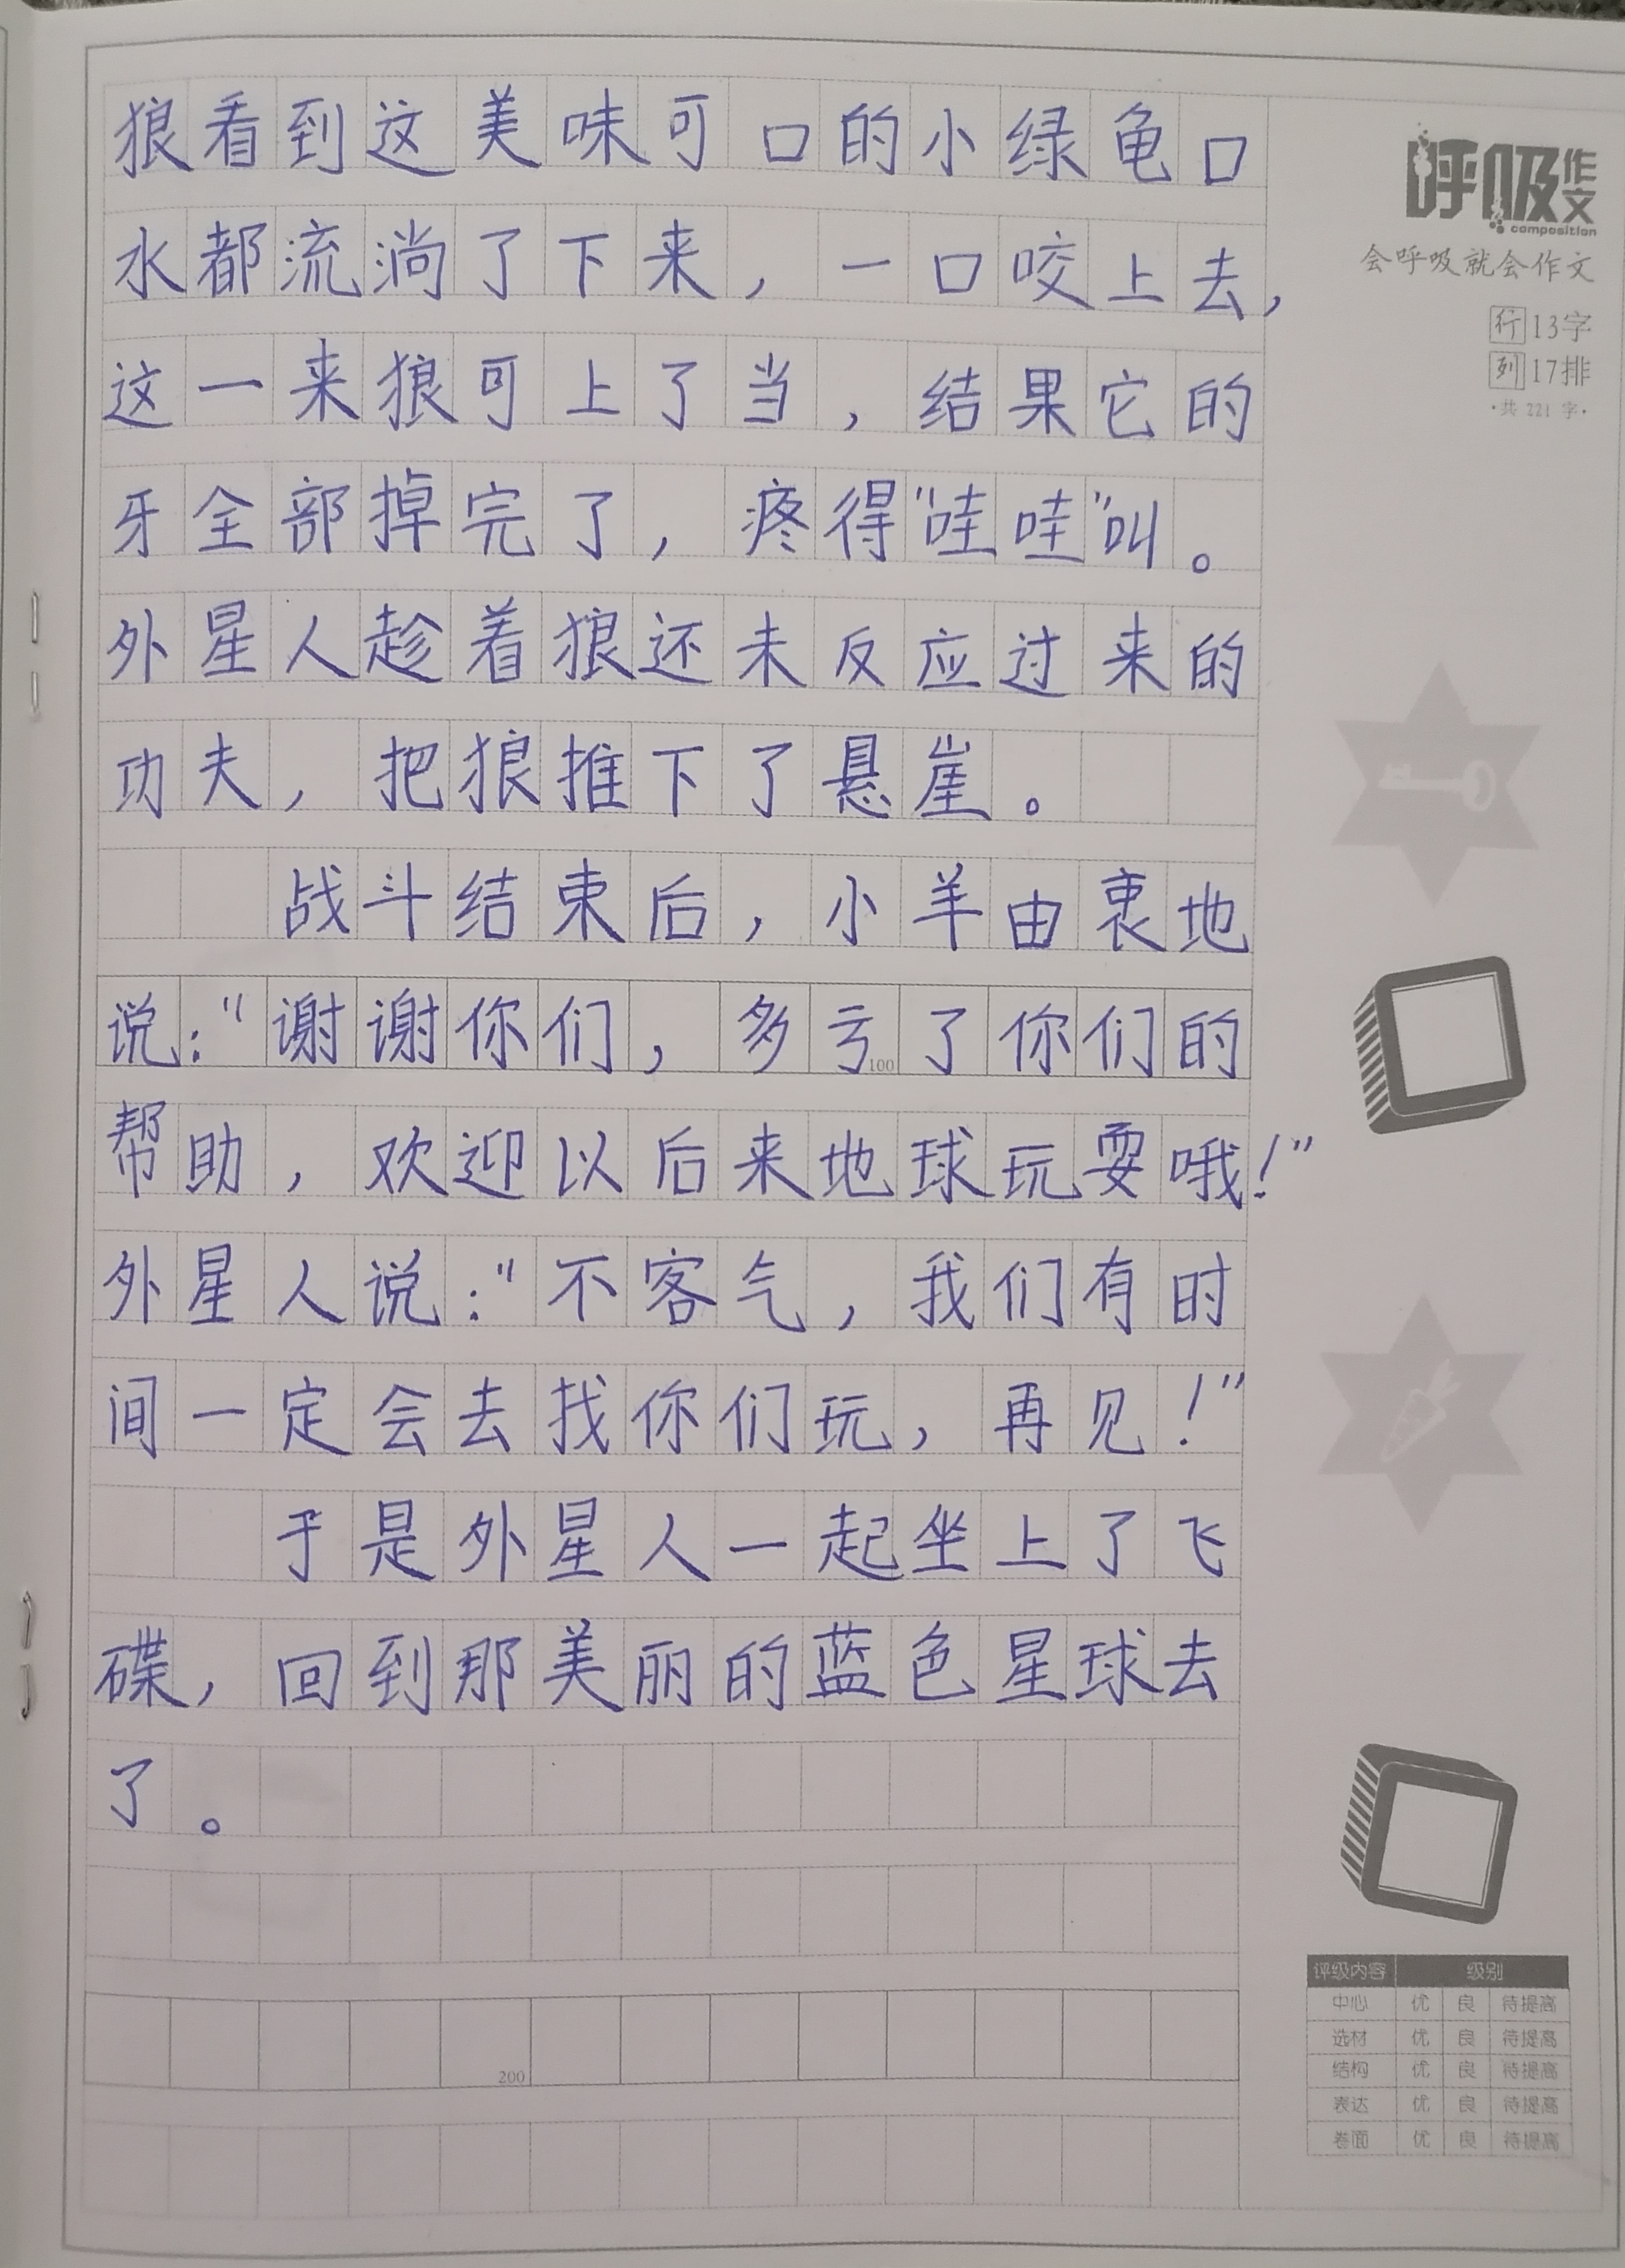 狼看到这美味可口的小绿龟口
水都流淌了下来，一口咬上去，
这一来狼可上了当，结果它的
牙全部掉完了，疼得"哇哇"叫。
外星人趁着狼还未反应过来的
功夫，把狼推下了悬崖。
战斗结束后，小羊由衷地
说："谢谢你们，多亏了你们的
100
帮助，欢迎以后来地球玩耍哦！"
外星人说："不客气，我们有时
间一定会去找你们玩，再见！"
于是外星人一起坐上了飞
碟，回到那美丽的蓝色星球去
了。
200
呼吸作文
composition
会呼吸就会作文
行 13字
列 17排
·共 221 字·
评级内容 级别
中心 优 良 待提高
选材 优 良 待提高
结构 优 良 待提高
表达 优 良 待提高
卷面 优 良 待提高